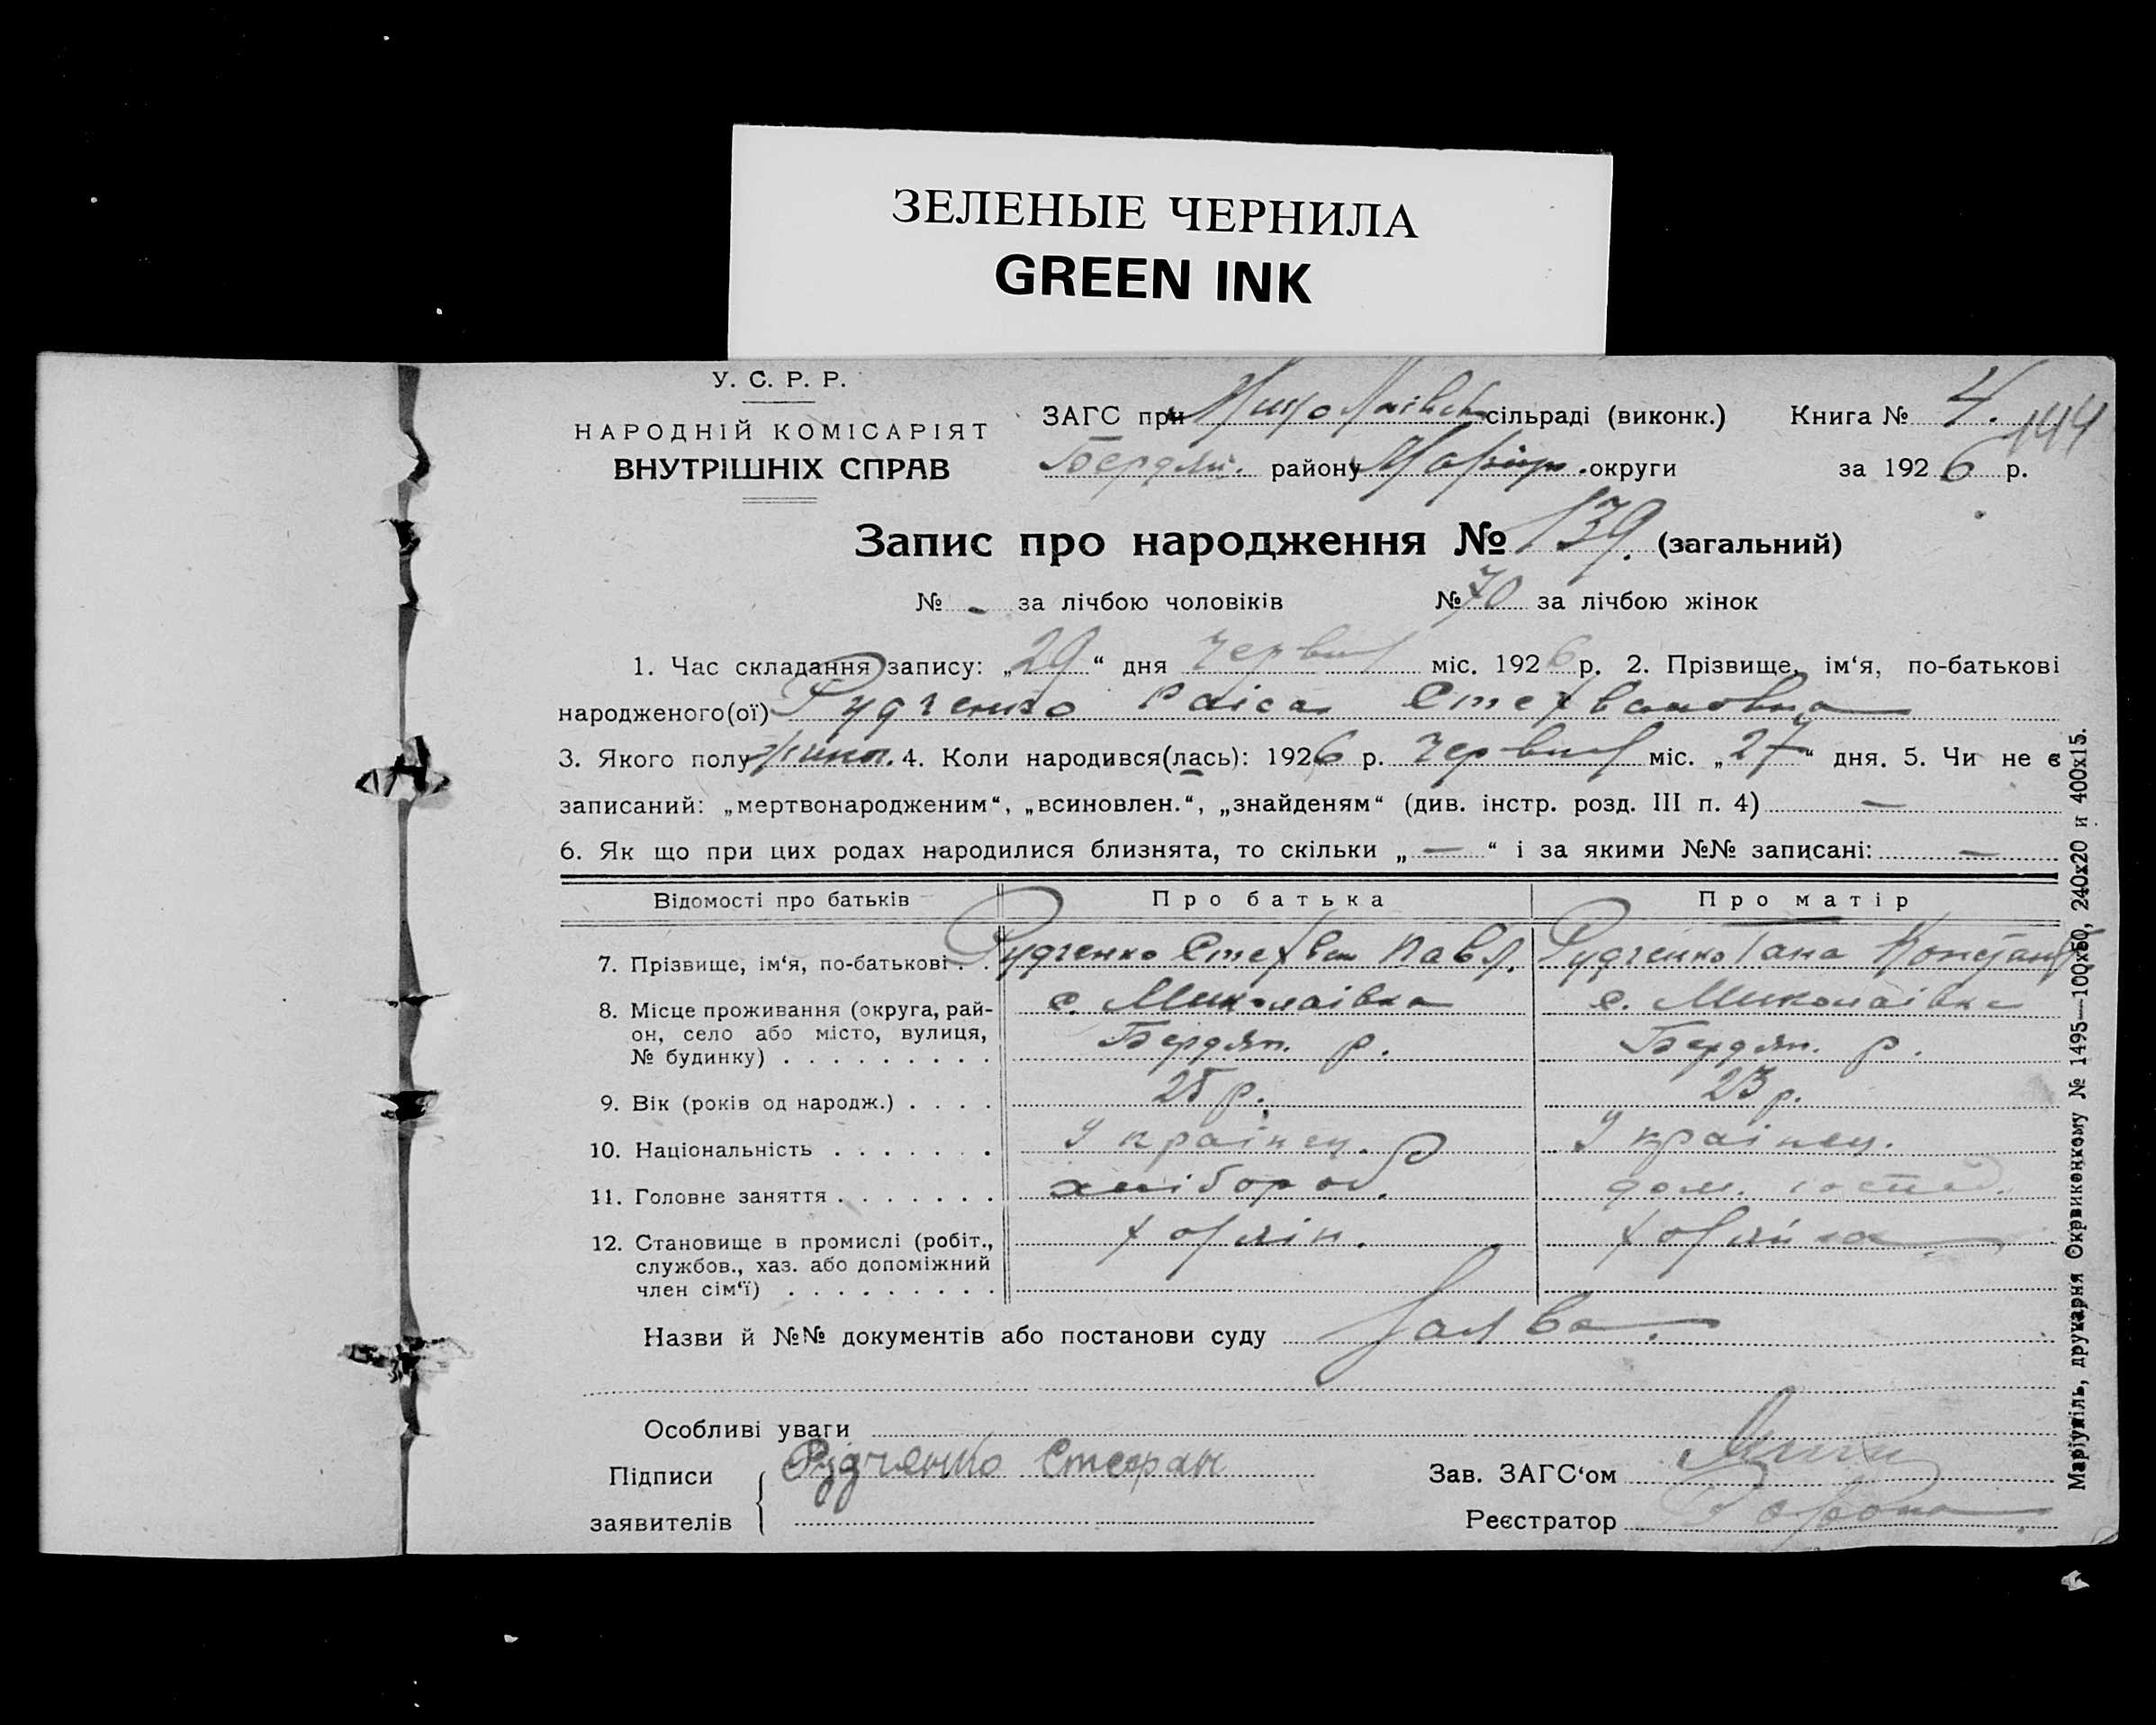 ЗЕЛЕНЫЕ ЧЕРНИЛА
GREEN INK
У. С. Р. Р.
НАРОДНІЙ КОМІСАРІЯТ
ВНУТРІШНІХ СПРАВ
ЗАГС при Миколаівск сільраді (виконк.) Книга № 4.
144
Бердян. району Маріюп. округи за 1926 р.
Запис про народження № 139. (загальний)
№ - за лічбою чоловіків № 70 за лічбою жінок
1. Час складання запису: „29“ дня червня міс. 1926 р. 2. Прізвище, ім‘я, по-батькові
народженого(ої) Рудченко Раіса Стехвановна
3. Якого полу жіноч. 4. Коли народився(лась): 1926 р. червня міс. „27“ дня. 5. Чи не є
записаний: „мертвонародженим“, „всиновлен.“, „знайденям“ (див. інстр. розд. III п. 4) —
6. Як що при цих родах народилися близнята, то скільки „—“ і за якими №№ записані: —
Відомості про батьків Про батька Про матір
7. Прізвище, ім‘я, по-батькові . . Рудченко Стехван Павл. Рудченко Гана Констант
8. Місце проживання (округа, рай- с. Миколаівка с. Миколаівка
он, село або місто, вулиця,
№ будинку) . . . . . . . . . Бердян. р. Бердян. р.
9. Вік (років од народж.) . . . . 25 р. 23 р.
10. Національність . . . . . . . Украінец. Украінец.
11. Головне заняття . . . . . . . хлібороб. дом. господ.
12. Становище в промислі (робіт.,
службов., хаз. або допоміжний
член сім‘ї) . . . . . . . . .
Назви й №№ документів або постанови суду Заява.
Особливі уваги
Підписи Рудченко Стефан Зав. ЗАГС‘ом
заявителів Реєстратор
Маріупіль, друкарня Окрвиконкому № 1495—100х50, 240х20 и 400х15.